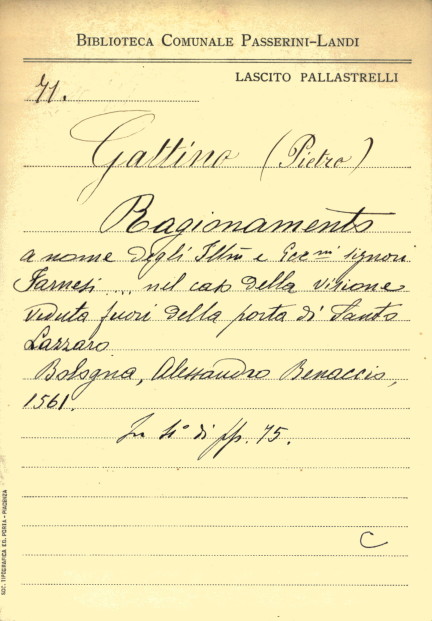 BIBLIOTECA COMUNALE PASSERINI-LANDI
LASCITO PALLASTRELLI
71.
Gattino (Pietro)
Ragionamento
a nome degli Illmi e Eccmi signori
Farnesi ... nel caso della visione
veduta fuori della porta di Santo
Lazzaro.
Bologna, Alessandro Benaccio,
1561.
In 4° di pp. 75.
C
SOC. TIPOGRAFICA ED. PORTA - PIACENZA